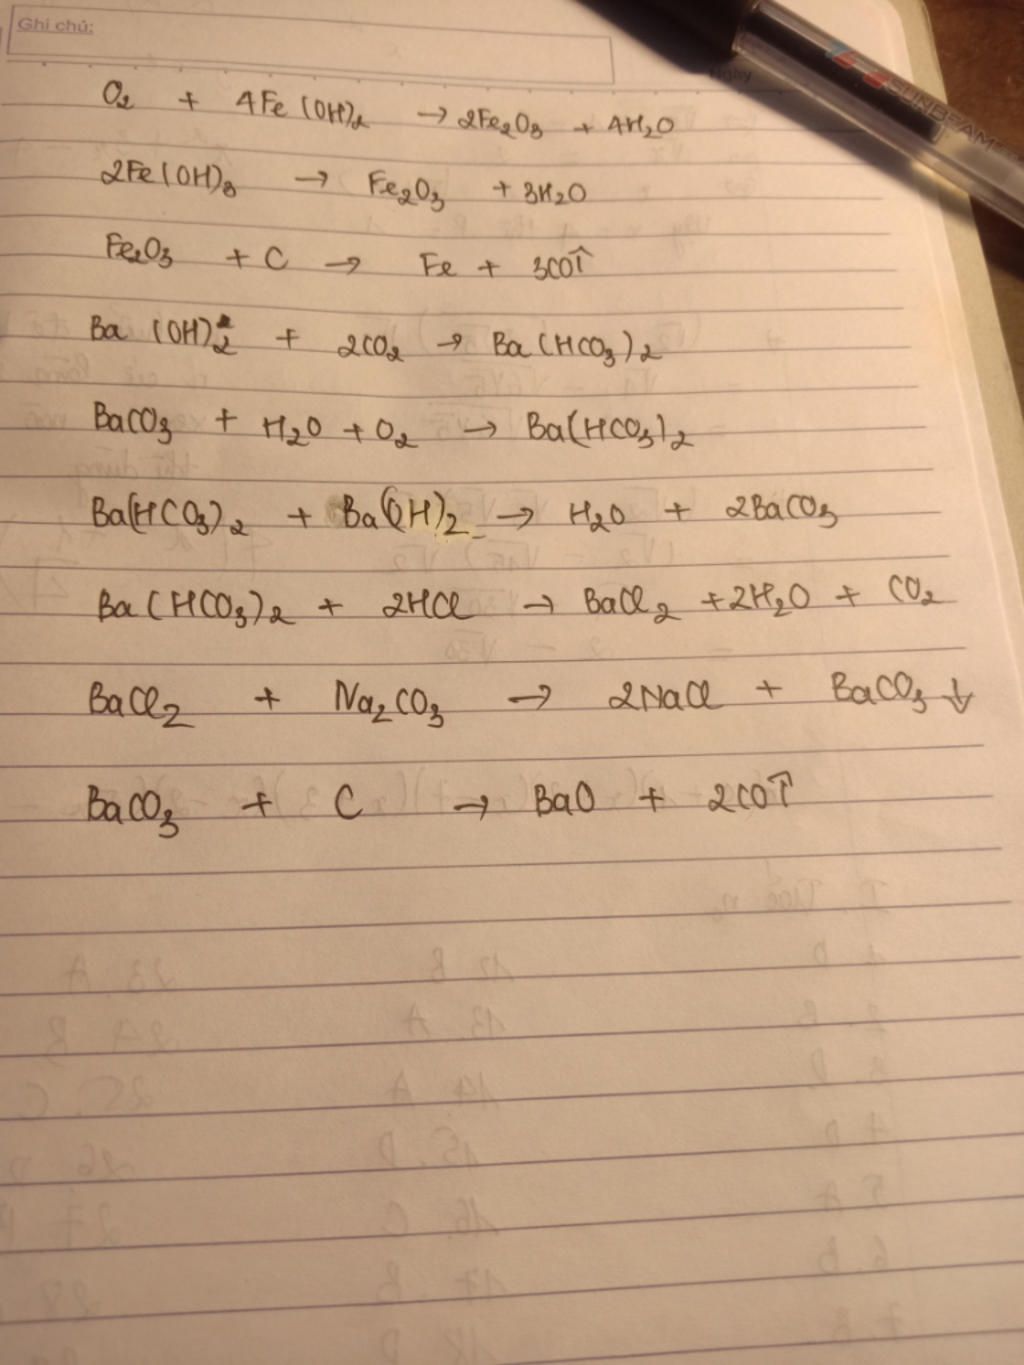 Ghi chú:
Ngày
SUNBEAM
O₂ + 4Fe(OH)₂ → 2Fe₂O₃ + 4H₂O
2Fe(OH)₃ → Fe₂O₃ + 3H₂O
Fe₂O₃ + C → Fe + 3CO↑
Ba(OH)₂ + 2CO₂ → Ba(HCO₃)₂
BaCO₃ + H₂O + O₂ → Ba(HCO₃)₂
Ba(HCO₃)₂ + Ba(OH)₂ → H₂O + 2BaCO₃
Ba(HCO₃)₂ + 2HCl → BaCl₂ + 2H₂O + CO₂
BaCl₂ + Na₂CO₃ → 2NaCl + BaCO₃↓
BaCO₃ + C → BaO + 2CO↑